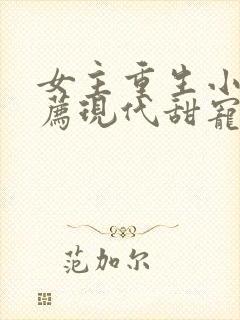 女主重生小
薦現代甜寵
范加尔